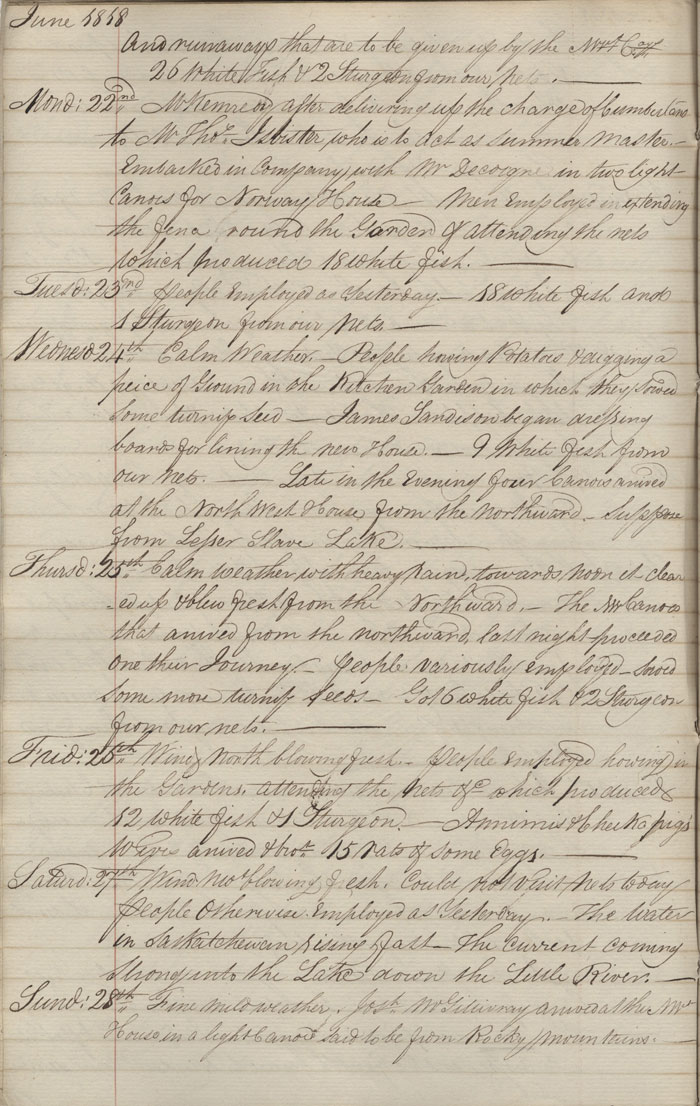 June 1818
And runaways that are to be given up by the N West Coys
26 White Fish & 2 Sturgeon from our Nets. —
Mond: 22nd Mr Kennedy after delivering up the charge of Cumberland
to Mr Thos. Isbister who is to act as summer Master. —
Embarked in Company with Mr Decoigne in two light
Canoes for Norway House — Men Employed in extending
the fence round the Garden & attending the nets
which produced 18 white fish. —
Tuesd: 23rd People Employed as Yesterday. — 18 white fish and
1 Sturgeon from our Nets —
Wednesd 24th Calm Weather. — People howing Potatoes & digging a
peice of Ground in the Kitchen Garden in which they sowed
some turnip seed — James Sandison began dressing
boards for lining the new House. — 9 White fish from
our Nets. — Late in the Evening four Canoes arived
at the North West House from the Northward — Suppose
from Lesser Slave Lake. —
Thursd: 25th Calm weather with heavy rain, towards noon it clear
-ed up & blew fresh from the Northward. — The NW Canoes
that arived from the northward last night proceeded
one their Journey. — People variously employed — sowed
some more turnip seeds — Got 6 white fish & 2 Sturgeon
from our nets. —
Frid: 26th Wind North blowing fresh. — People Employed howing in
the Gardens. attending the Nets &c which produced
12 white fish & 1 Sturgeon. — Annimis & Cheekapugs
Wives arived & brot. 15 rats & some Eggs. —
Saturd: 27th Wind blowing fresh. Could not visit Nets today
People otherwise Employed as Yesterday. — The Water
in Saskatchewan rising fast — The current coming
strong into the Lake down the Little River. —
Sund: 28th Fine mild weather. Josh. McGilivray arived at the N West
House in a light Canoe said to be from Rocky Mountains. —